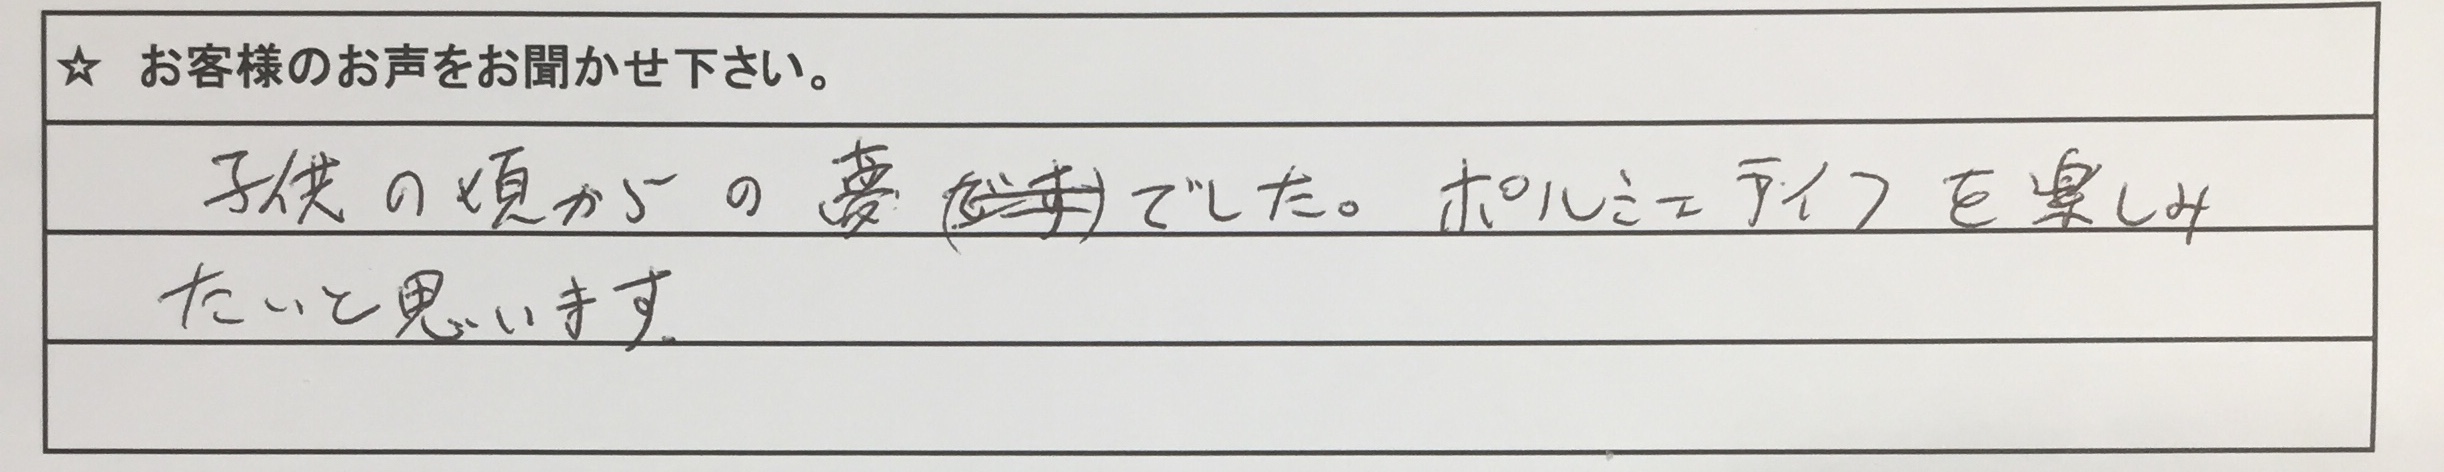 ☆ お客様のお声をお聞かせ下さい。
子供の頃からの夢でした。ポルシェライフを楽しみ
たいと思います.